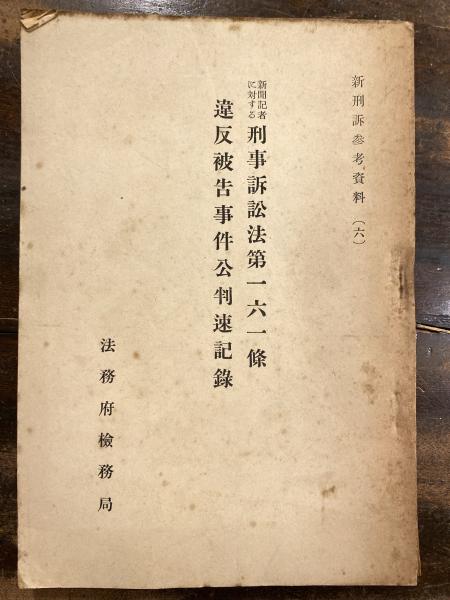 新刑訴参考資料（六）
新聞記者
に対する
刑事訴訟法第一六一條
違反被告事件公判速記錄
法務府檢務局